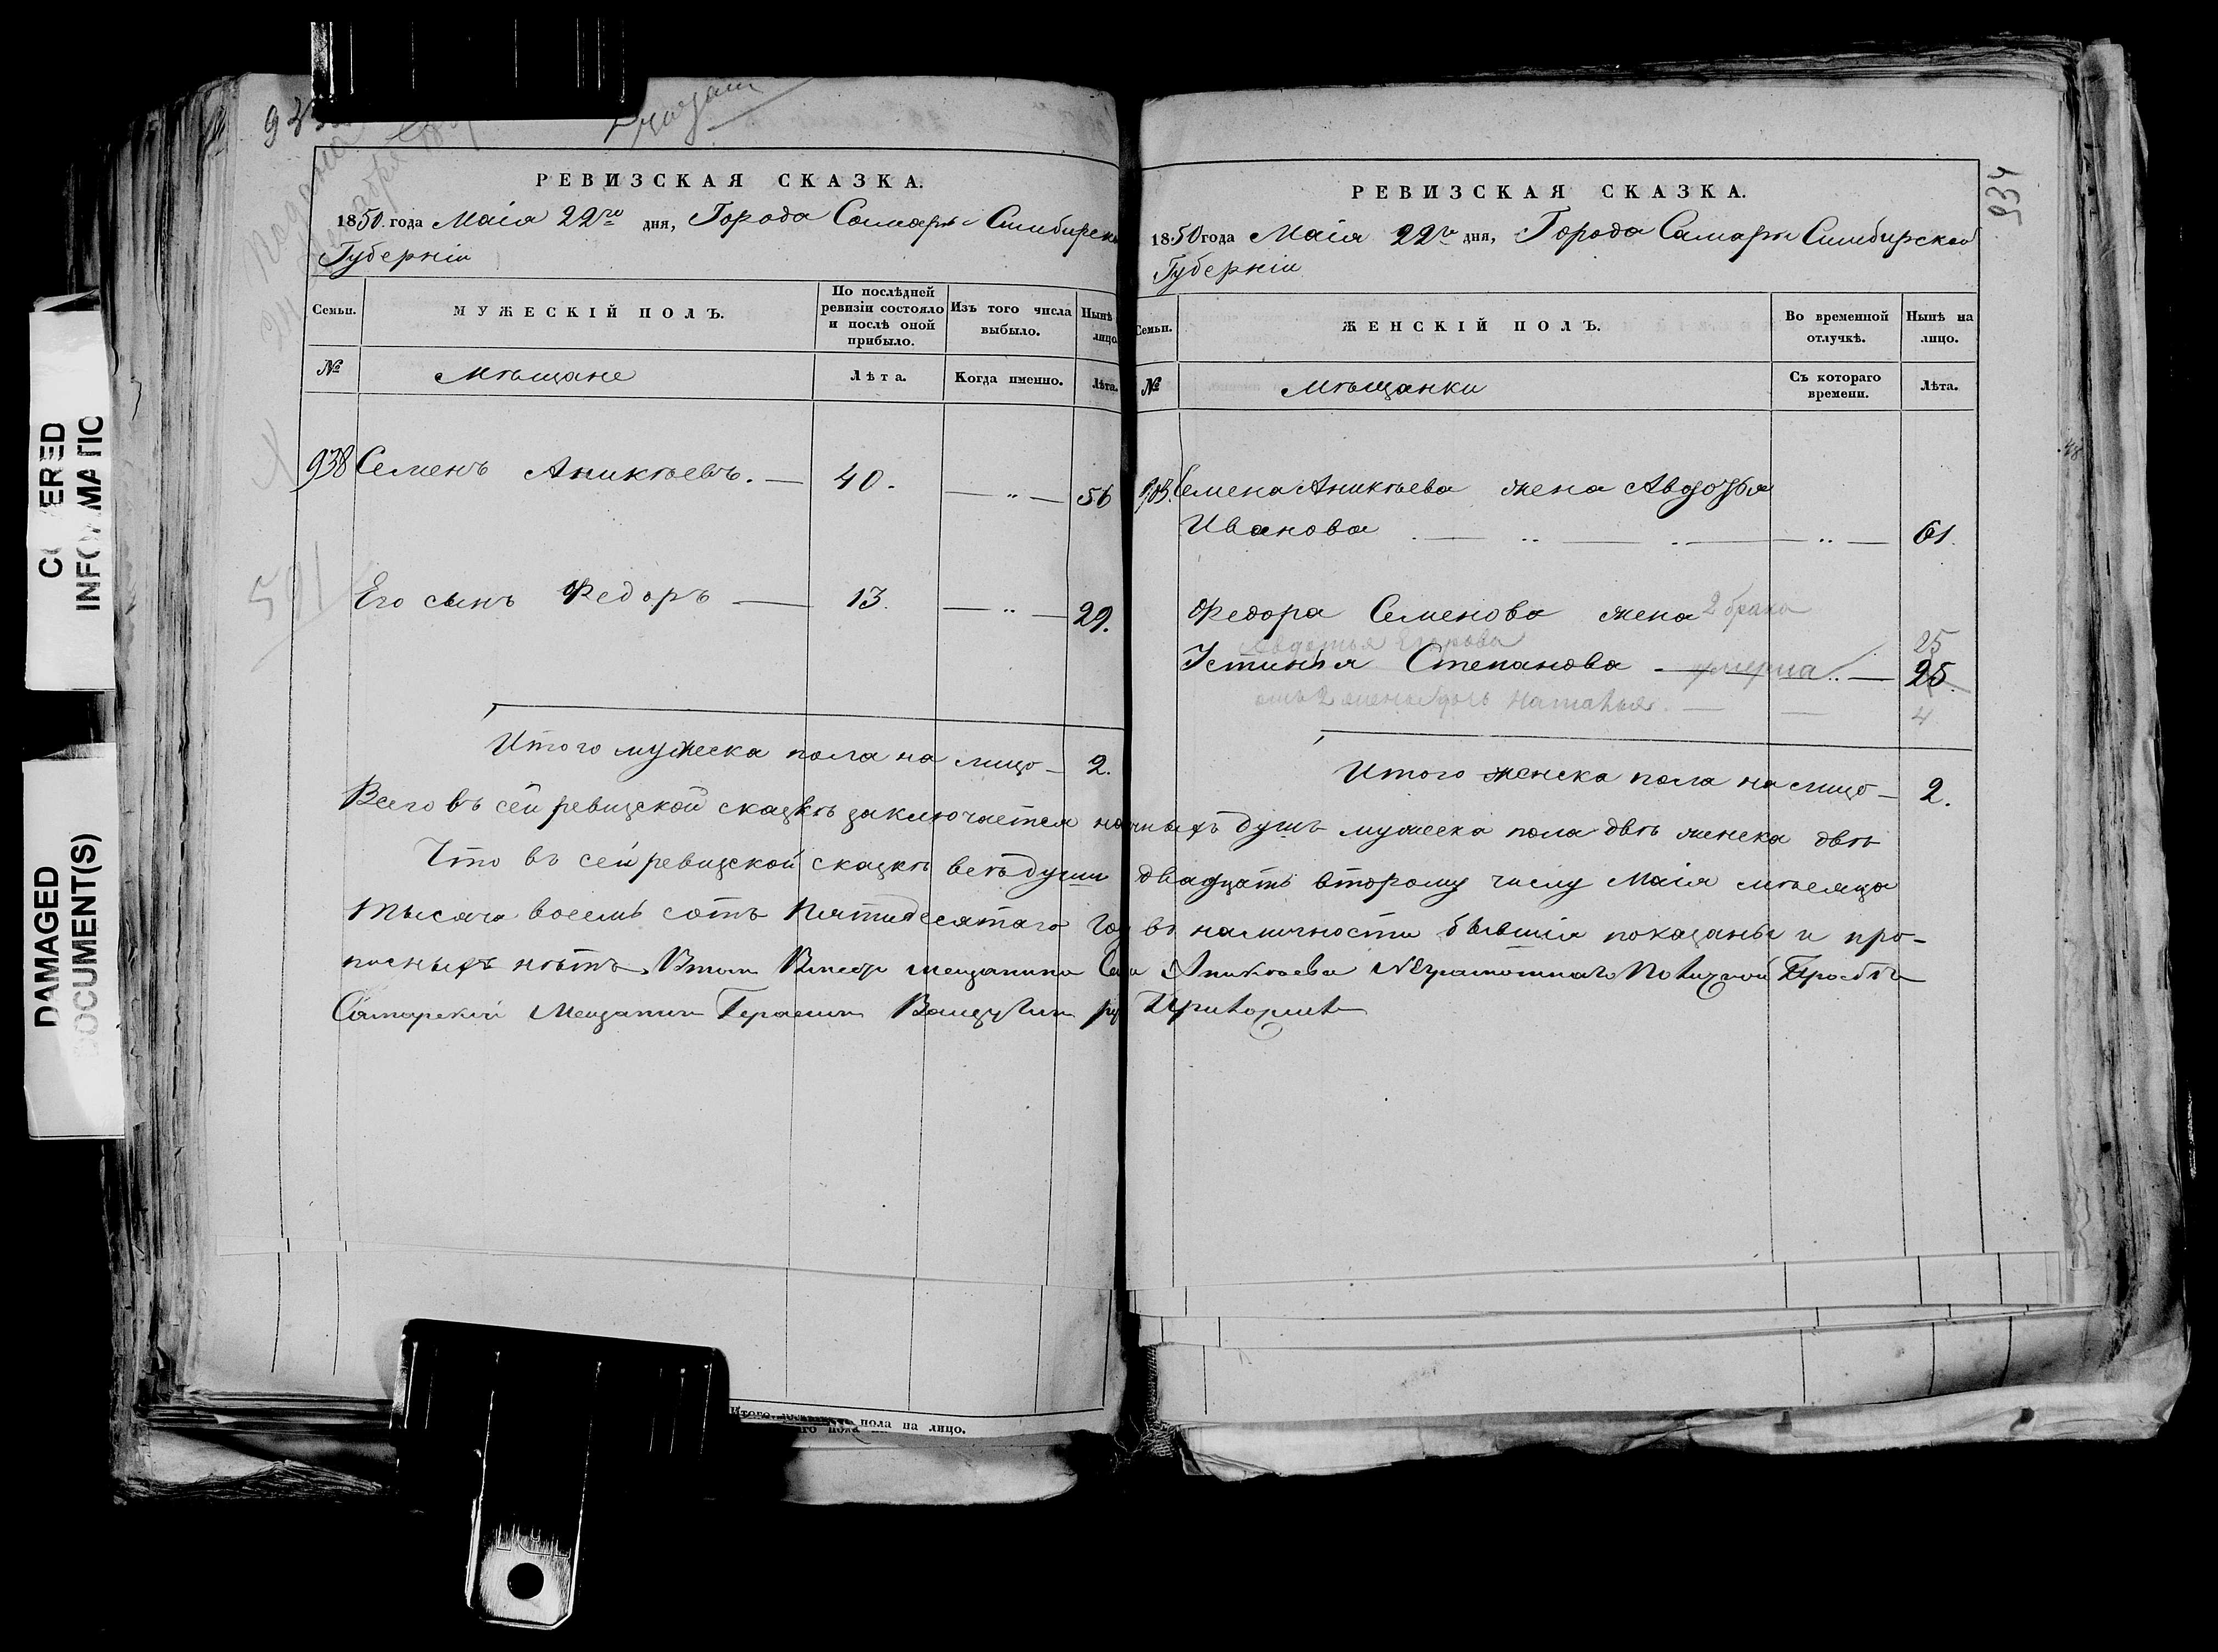 COVERED
INFORMATIC
DAMAGED
DOCUMENT(S)
РЕВИЗСКАЯ СКАЗКА.
1850 года Маія 22го дня, Города Самары Симбирско
Губерніи
Семьи. МУЖЕСКІЙ ПОЛЪ. По послѣдней ревизіи состояло и послѣ оной прибыло. Изъ того числа выбыло. Нынѣ лицо.
№ Мѣщане Лѣта. Когда именно. Лѣта.
938 Семенъ Аникѣевъ. — 40. — „ — 56
Его сынъ Федоръ — 13. — „ — 29.
Итого мужеска пола на лицо — 2.
934
РЕВИЗСКАЯ СКАЗКА.
1850 года Маія 22го дня, Города Самары Симбирской
Губерніи
Семьи. ЖЕНСКІЙ ПОЛЪ. Во временной отлучкѣ. Нынѣ на лицо.
№ Мѣщанки Съ котораго времени. Лѣта.
Семена Аникѣева жена Авдотья
Иванова — „ — „ — „ — 61.
Федора Семенова жена 2 брака
Авдотья Егорова 25
Устинья Степанова — умерла „ — 25.
отъ 2 жены дочь Наталья — — 4
Итого женска пола на лицо — 2.
Всего въ сей ревизской сказкѣ заключается наличныхъ душъ мужеска пола двѣ женска двѣ
Что въ сей ревизской сказкѣ всѣ души двадцать второму числу Маія мѣсяца
тысяча восемь сотъ пятидесятаго году въ наличности бывшія показаны и про-
писныхъ нѣтъ. Аникѣева Неграмотнаго По личной Прозбѣ
Самарскій Мещанин Герасим ру Приложил
пола на лицо.